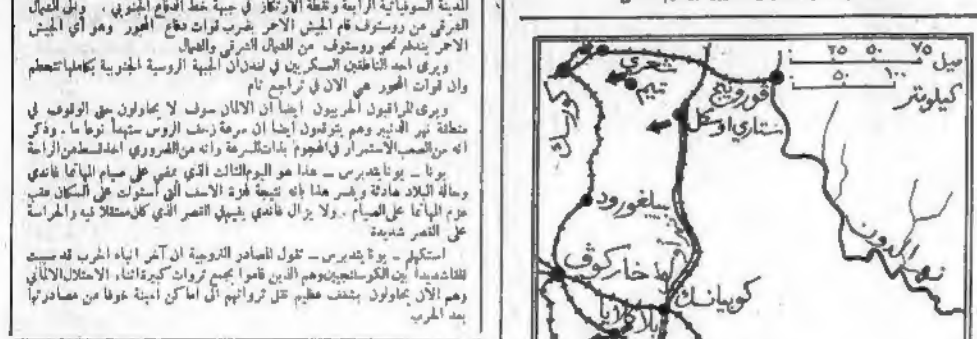 المدينة السوفياتية الرابعة ونقطة الارتكاز في جبهة خط الدفاع الجنوبي . والى الشمال
الشرقي من روستوف قام الجيش الاحمر بضرب قوات دفاع المحور وهو أي الجيش
الاحمر يندفع نحو روستوف من الشمال الشرقي والشمال
ويرى احد الناطقين العسكريين في لندن أن الجبهة الروسية الجنوبية بكاملها تتحطم
وان قوات المحور هي الآن في تراجع تام
ويرى المراقبون الحربيون ايضا ان الالمان سوف لا يحاولون حتى الوقوف في
منطقة نهر الدنيبر وهم يتوقعون ايضا ان سرعة زحف الروس ستهدأ نوعا ما . وذكر
انه من الصعب الاستمرار في الهجوم بذات السرعة وانه من الضروري اخذ قسط من الراحة
بونا – يونايتدبرس – هذا هو اليوم الثالث الذي يمضي على صيام المهاتما غاندي
وحالة البلاد هادئة ويفسر هذا بانه نتيجة لهزة الاسف التي استولت على السكان عقب
عزم المهاتما على الصيام . ولا يزال غاندي بنفس القصر الذي كان معتقلا فيه والحراسة
على القصر شديدة
استكهلم – يونايتدبرس – تقول المصادر النروجية ان آخر انباء الحرب قد سببت
قلقا شديدا بين الكوسلنجيين وهم الذين قاموا بجمع ثروات كبيرة اثناء الاحتلال الالماني
وهم الآن يحاولون بشغف عظيم نقل ثرواتهم الى اماكن أمينة خوفا من مصادرتها
بعد الحرب
ميل ٧٥ ٥٠ ٢٥
كيلومتر ١٠٠ ٥٠
شغري
تيم
فورونيج
ستاري اوسكل
كورسك
بييلغورود
نهر الدون
خاركوف
كوبيانسك
بلاكلايا